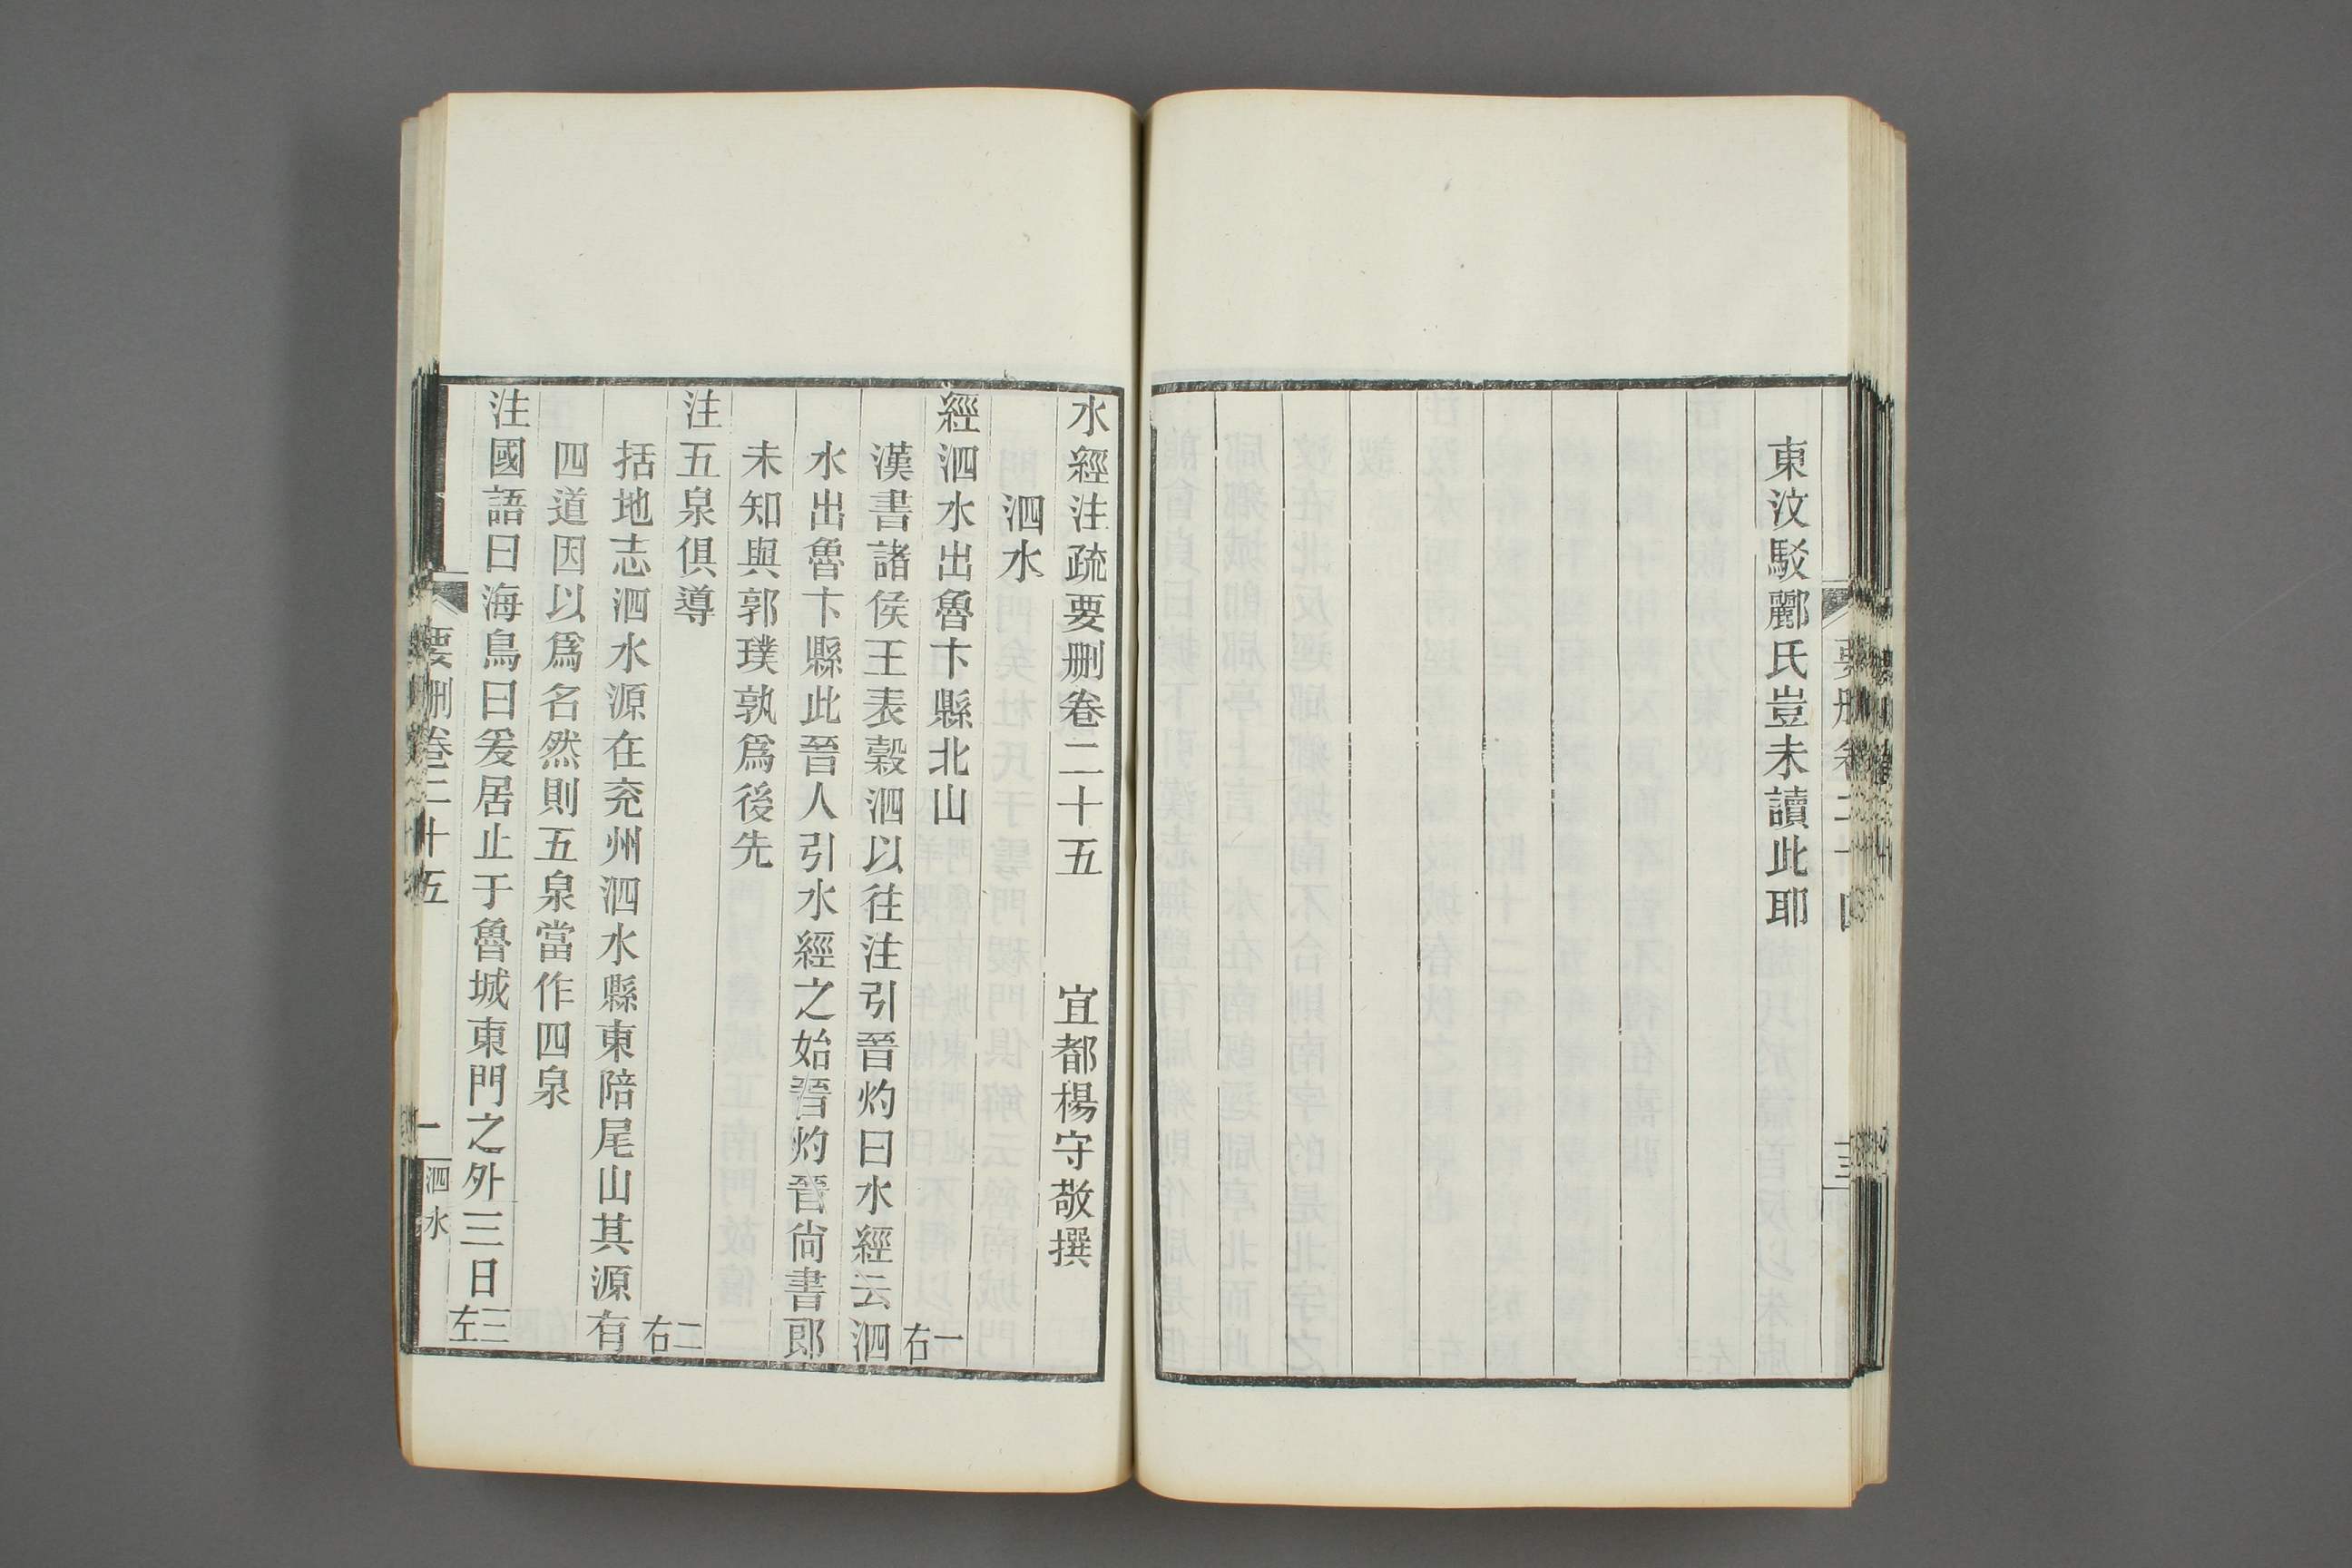 東汶駁酈氏豈未讀此耶
水經注疏要刪卷二十五　宜都楊守敬撰
泗水
經泗水出魯卞縣北山　一右
漢書諸侯王表穀泗以往注引晉灼曰水經云泗
水出魯卞縣此晉人引水經之始晉灼晉尚書郎
未知與郭璞孰爲後先
注五泉俱導　二右
括地志泗水源在兖州泗水縣東陪尾山其源有
四道因以爲名然則五泉當作四泉
注國語曰海鳥曰爰居止于魯城東門之外三日　三左
要刪卷二十五　一　泗水